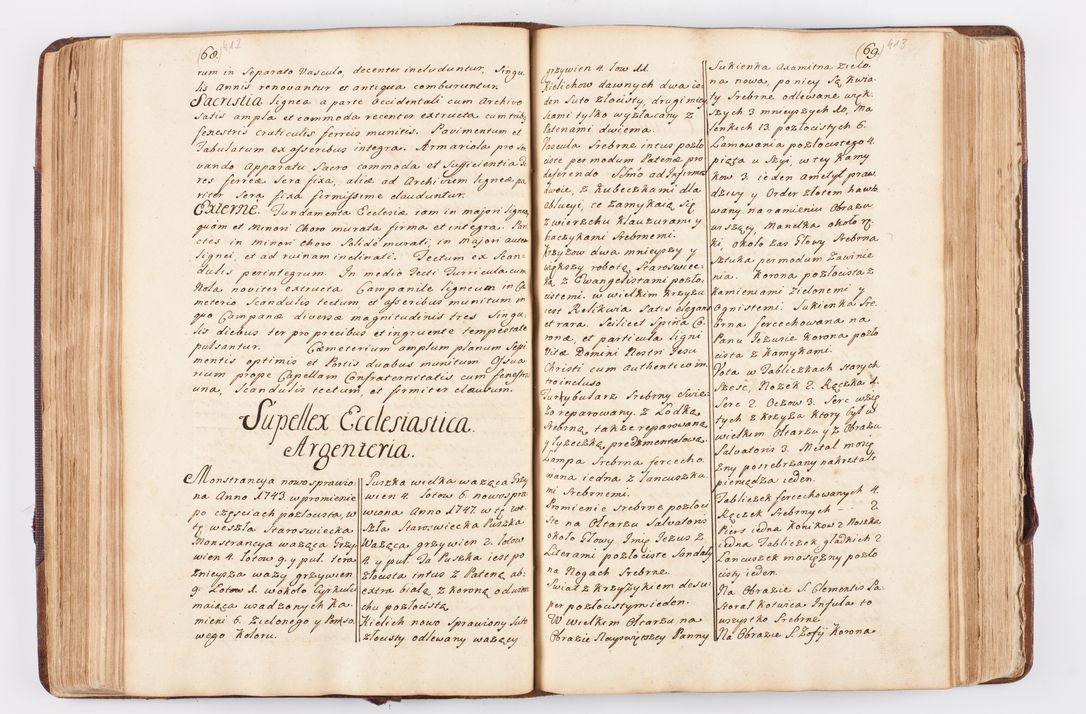 (68.) 412
rum in Separato Vasculo, decenter includuntur, Singu-
lis Annis renovantur et antiqua comburentur.
Sacristia lignea a parte occidentali cum Archivo
satis ampla et commoda recenter extructa cum tribus
fenestris craticulis ferreis munitis. Pavimentum et
Tabulatum ex asseribus integra. Armariola pro ser-
vando Apparatu Sacro commoda et sufficientia. Fo-
res ferreæ Sera fixa, aliæ ad Archivum ligneæ pa-
riter Sera fixa firmissime clauduntur.
Externè. Fundamenta Ecclesiæ tam in majori ligneo,
quam et Minori Choro murata firma et integra. Pari-
etes in minori choro Solide murati, in Majori autem
lignei, et ad ruinam inclinati. Tectum ex Scan-
dulis perintegrum. In medio Tecti Turricula cum
Nola noviter extructa. Campanile ligneum in Cæ-
meterio Scandulis tectum et asseribus munitum in
quo Campanæ diversæ magnitudinis tres. Singu-
lis diebus ter pro precibus et ingruente tempestate
pulsantur. Cæmeterium amplum planum Sepi-
mentis optimis et Portis duabus munitum. Ossua-
rium prope Capellam Confraternitatis cum fenestra
una, Scandulis tectum, et firmiter clausum.
Supellex Ecclesiastica.
Argenteria.
Monstrancya nowo sprawio-
na Anno 1743. w promienie
po częsciach pozłocista, w
tę weszła Staroswiecka
Monstrancya ważąca Grzy-
wien 4. łotow 9. y puł. teraz-
znieysza waży grzywien
9. Łotow 1. w około Cyrkułu
maiąca wsadzonych Ka-
mieni 6. Zielonego y Ponso-
wego Koloru.
Puszka wielka ważąca Grzy-
wien 4. łotow 6. nowo spra-
wiona Anno 1747. w tę we-
szła Staroswiecka Puszka
Ważąca grzywien 2. łotow
4. y puł. Ta Puszka iest po-
złocista intus z Pateną ab-
extra białą z koroną od wierz-
chu pozłocistą
Kielich nowo Sprawiony Suto
złocisty odlewany ważący
(69.) 413
grzywien 4. łow 11.
Kielichow dawnych dwa ie-
den Suto złocisty, drugi miey-
scami tylko wyzłacany z
Patenami dwiema.
Vascula Srebrne intus pozło-
ciste per modum Patenæ pro
deferendo SSmo ad Infirmos
dwoie, z Kubeczkami dla
ablucyi, te zamykaią się
z wierzchu Klauzurami y
haczykami Srebrnemi.
Krzyżow dwa mnieyszy y
większy robotą Staroswiec-
ką z Ewangelistami pozło-
cistemi. w wielkim Krzyżu
iest Relikwia satis elegans
et rara. Scilicet Spina Co-
ronæ, et particula Ligni
Vitæ Domini Nostri Jesu
Christi cum Authentico in-
tro incluso.
Turrybularz Srebrny Swie-
żo reparowany. z Łodką
Srebrną także reparowaną
y łyżeczką predzmentalową.
Lampa Srebrna fercecho-
wana iedna z łancuszka-
mi Srebrnemi.
Promienie Srebrne pozłoci-
ste na Ołtarzu Salvatoris
około Głowy Imię Jezus z
Literami pozłociste Sandały
na Nogach Srebrne.
Swiat z Krzyżykiem desu-
per pozłoustym ieden.
W wielkim Ołtarzu na
Obrazie Nayswiętszey Panny
Sukienka Axamitna zielo-
na nowa, po niey są kwia-
ty Srebrne odlewane więk-
szych 3 mnieyszych 10, Ma-
lenkich 13. pozłocistych 6.
Lamowania pozłocistego 4.
piąta u Szyi, w tey Kamy
kow 3. ieden Ametyst praw-
dziwy y Order złotem hawto-
wany, na ramieniu Obrazu
wiszący, Manelka około rę-
ki, około zas Głowy Srebrna
Sztuka per modum Zawinie-
nia. Korona pozłocista z
Kamieniami zielonemi y
Ognistemi. Sukienka Sre-
brna fercechowana na
Panu Jezusie Korona pozło-
cista z Kamykami.
Vota w Tabliczkach starych
Szesc, Nożek 2. Rączka 1.
Serc 2. Oczow 3. Serc wzię-
tych z Krzyża ktory był w
wielkim Ołtarzu y z Obrazu
Salvatoris 3. Metal mosię-
żny posrebrzany na kształt
pieniądza ieden.
Tabliczek fercechowanych 4.
Rączek Srebrnych - - - 2
Piers iedna Konikow 2 Noszka
iedna Tabliczek gładkich 2
Łancuszek mosiężny pozło-
cisty ieden.
Na Obrazie S. Clementis Pa-
storał Kotwica Infuła to
wszystko Srebrne
Na Obrazie S. Zofÿ Korona